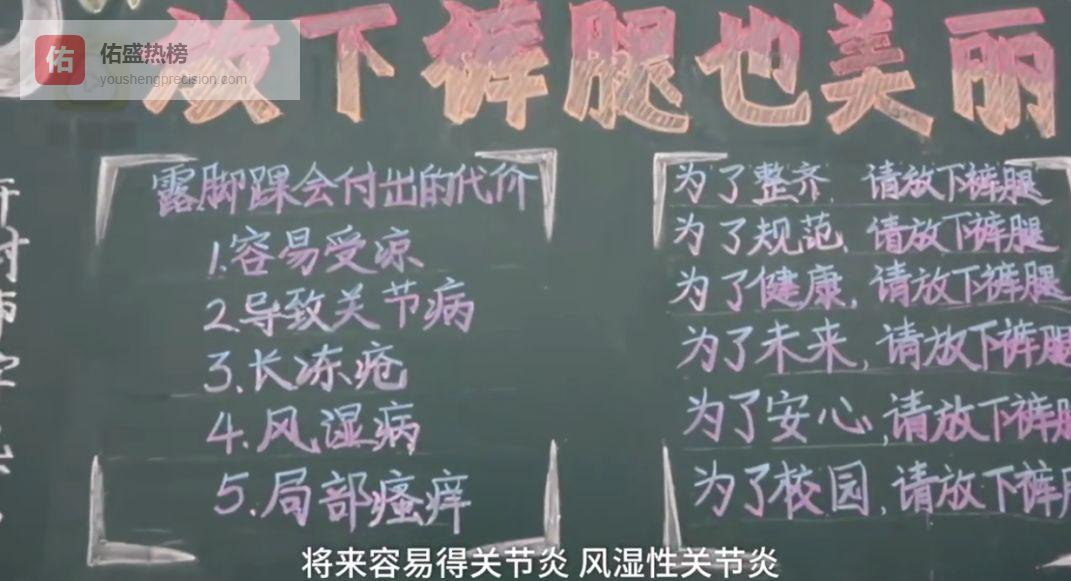 佑盛热榜
youshengprecision.com
放下裤腿也美丽
露脚踝会付出的代价
1.容易受凉
2.导致关节病
3.长冻疮
4.风湿病
5.局部瘙痒
为了整齐,请放下裤腿
为了规范,请放下裤腿
为了健康,请放下裤腿
为了未来,请放下裤腿
为了安心,请放下裤腿
为了校园,请放下裤腿
将来容易得关节炎 风湿性关节炎